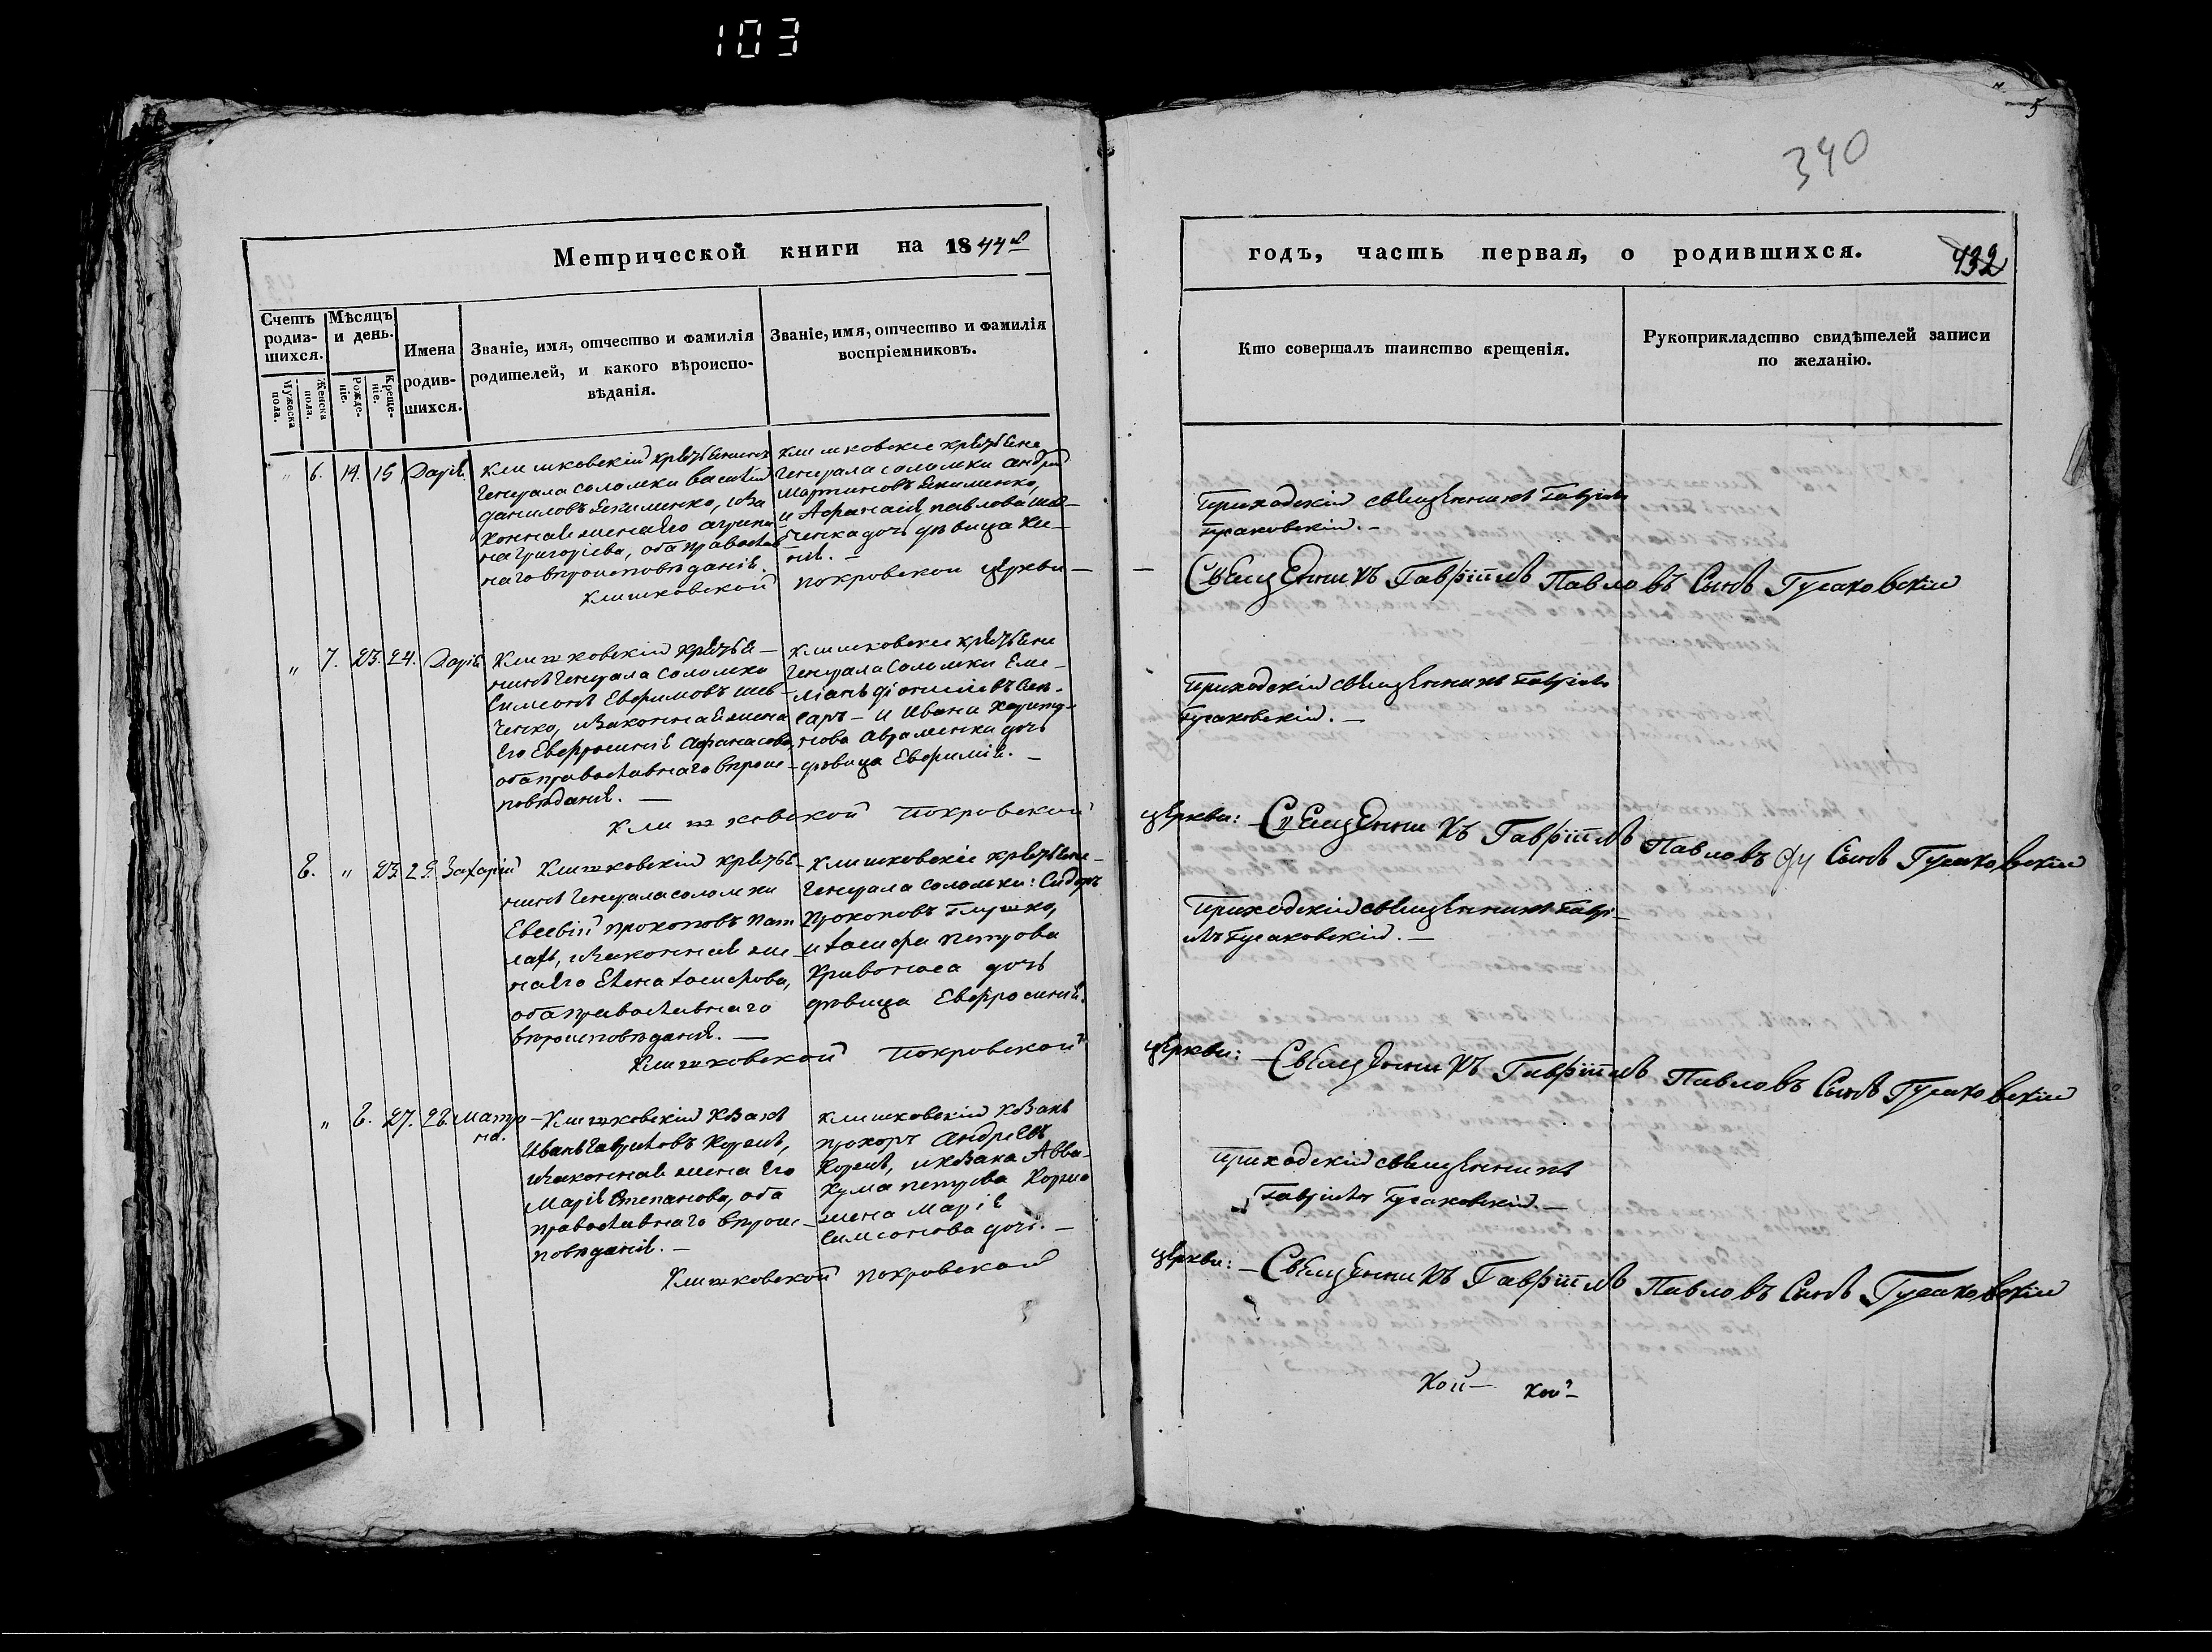 103
5
340
Метрической книги на 1844й
годъ, часть первая, о родившихся.
432
Счетъ родив-шихся.
Мужеска пола.
Женска пола.
Мѣсяцъ и день.
Рожде-ніе.
Креще-ніе.
Имена родив-шихся.
Званіе, имя, отчество и фамилія
родителей, и какого вѣроиспо-
вѣданія.
Званіе, имя, отчество и фамилія
воспріемниковъ.
Кто совершалъ таинство крещенія.
Рукоприкладство свидѣтелей записи
по желанію.
" 6. 14. 15 Дарія
Клишковскій крестьянинъ
Генерала Соломки Василій
Даниловъ Якименко, и за
конная жена его Агрипи
на Григоріева, оба православ
наго вѣроисповѣданія.
Клишковскіе крестьяне
Генерала Соломки Андрей
Мартиновъ Якименко,
и Афанасія Павлова Шев-
ченка дочь дѣвица
Приходскій священникъ Гавріилъ
Гусаковскій. —
Клишковской Покровской церкви —
Священникъ Гавріилъ Павловъ Сынъ Гусаковскій
" 7. 23. 24. Дарія
Клишковскій крестья-
нинъ Генерала Соломки
Симеонъ Евфимовъ Шев-
ченко, и законная жена
его Евфросинія Афанасова,
оба православнаго вѣроис-
повѣданія. —
Клишковскіе крестьяне
Генерала Соломки Еме-
ліанъ Діонисіевъ
и Ивана Харито-
нова Авраменка дочь
дѣвица Евфимія. —
Приходскій священникъ Гавріилъ
Гусаковскій. —
Клишковской Покровской церкви: — Священникъ Гавріилъ Павловъ Сынъ Гусаковскій
8. " 23. 25. Захарій
Клишковскій крестья-
нинъ Генерала Соломки
Евсевій Прокоповъ
и законная же-
на его Елена Іосифова,
оба православнаго
вѣроисповѣданія. —
Клишковскіе крестьяне
Генерала Соломки: Сидоръ
Прокоповъ Глушко,
и Іосифа Петрова
Кривоноса дочь
дѣвица Евфросинія.
Приходскій священникъ Гаврі-
илъ Гусаковскій. —
Клишковской Покровской церкви: — Священникъ Гавріилъ Павловъ Сынъ Гусаковскій
" 8. 27. 28. Матро
на.
Клишковскій козакъ
Иванъ Гавриловъ
и законная жена его
Марія Степанова, оба
православнаго вѣроис-
повѣданія. —
Клишковскій козакъ
Прохоръ Андреевъ
и козака Авва-
кума Петрова
жена Марія
Симеонова дочь. —
Приходскій священникъ
Гавріилъ Гусаковскій. —
Клишковской Покровской церкви: — Священникъ Гавріилъ Павловъ Сынъ Гусаковскій
Кой — кой —